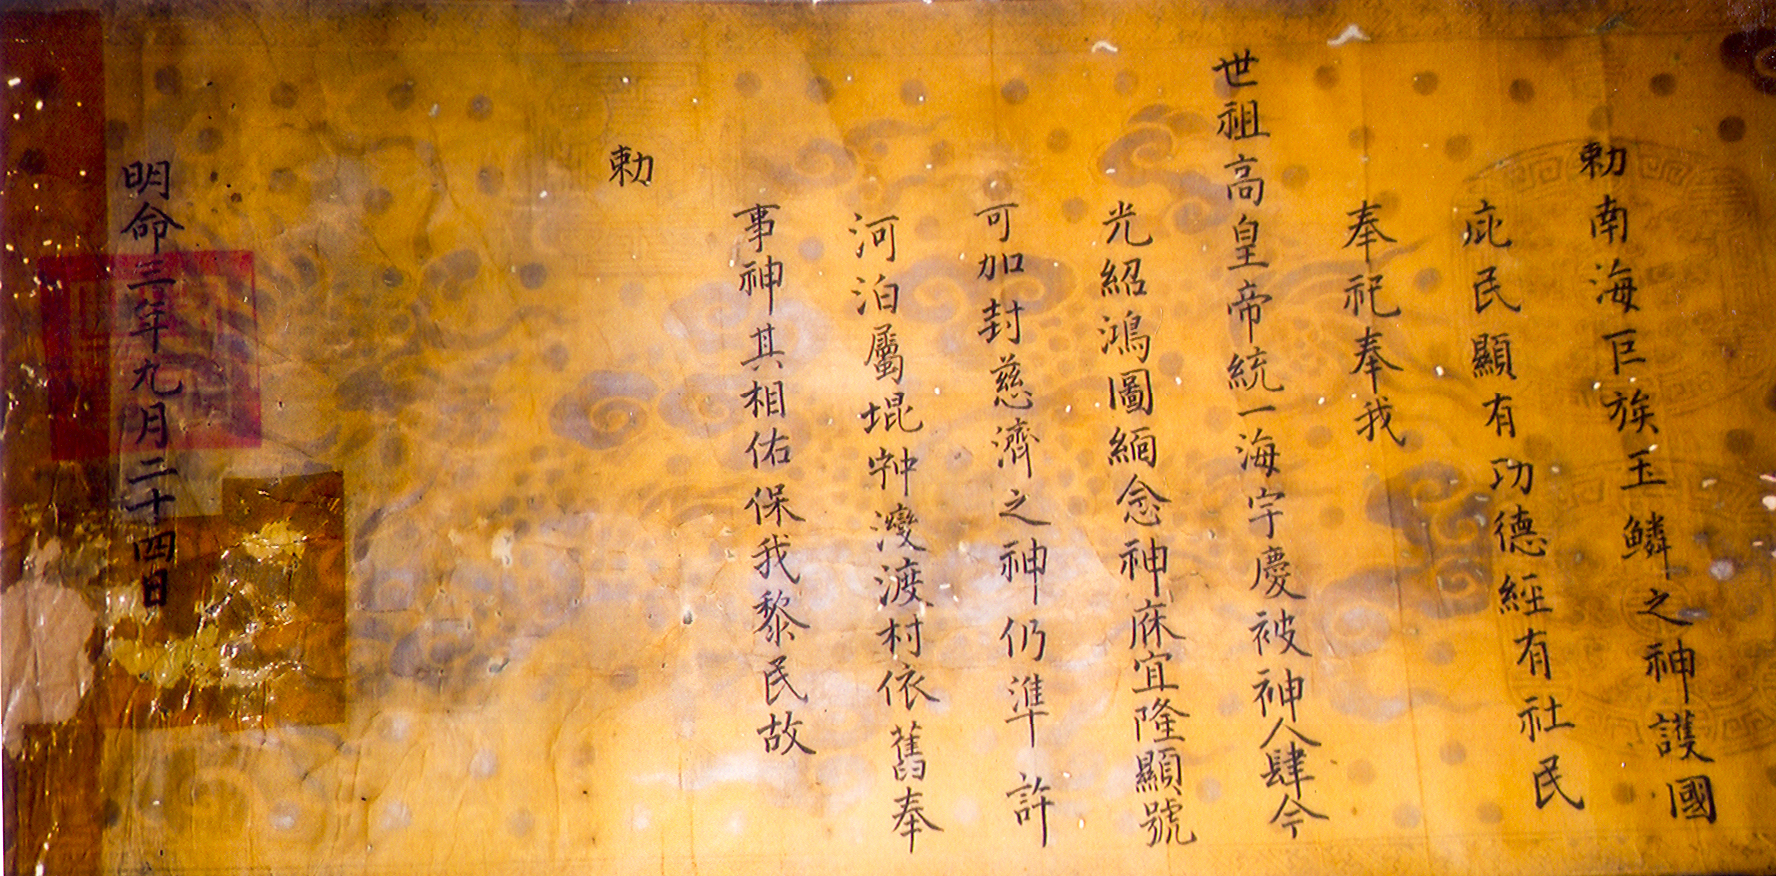 勅南海巨族玉鱗之神護國
庇民顯有功德經有社民
奉祀奉我
世祖高皇帝統一海宇慶被神人肆今
光紹鴻圖緬念神庥宜隆顯號
可加封慈濟之神仍準許
河泊屬堒渡村依舊奉
事神其相佑保我黎民故
勅
明命三年九月二十四日